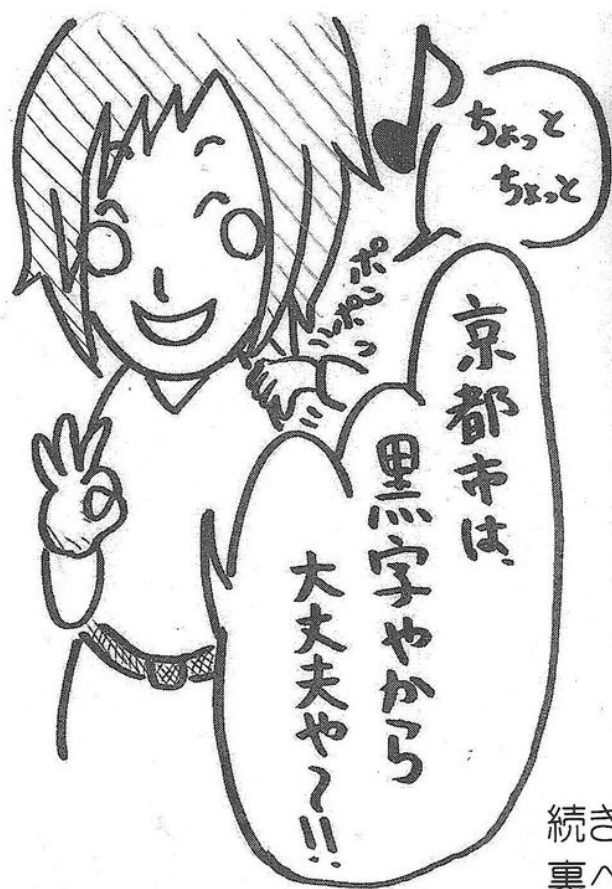 ちょっと
ちょっと
ポン
ポン
京都市は、
黒字やから
大丈夫や～!!
続き
裏へ